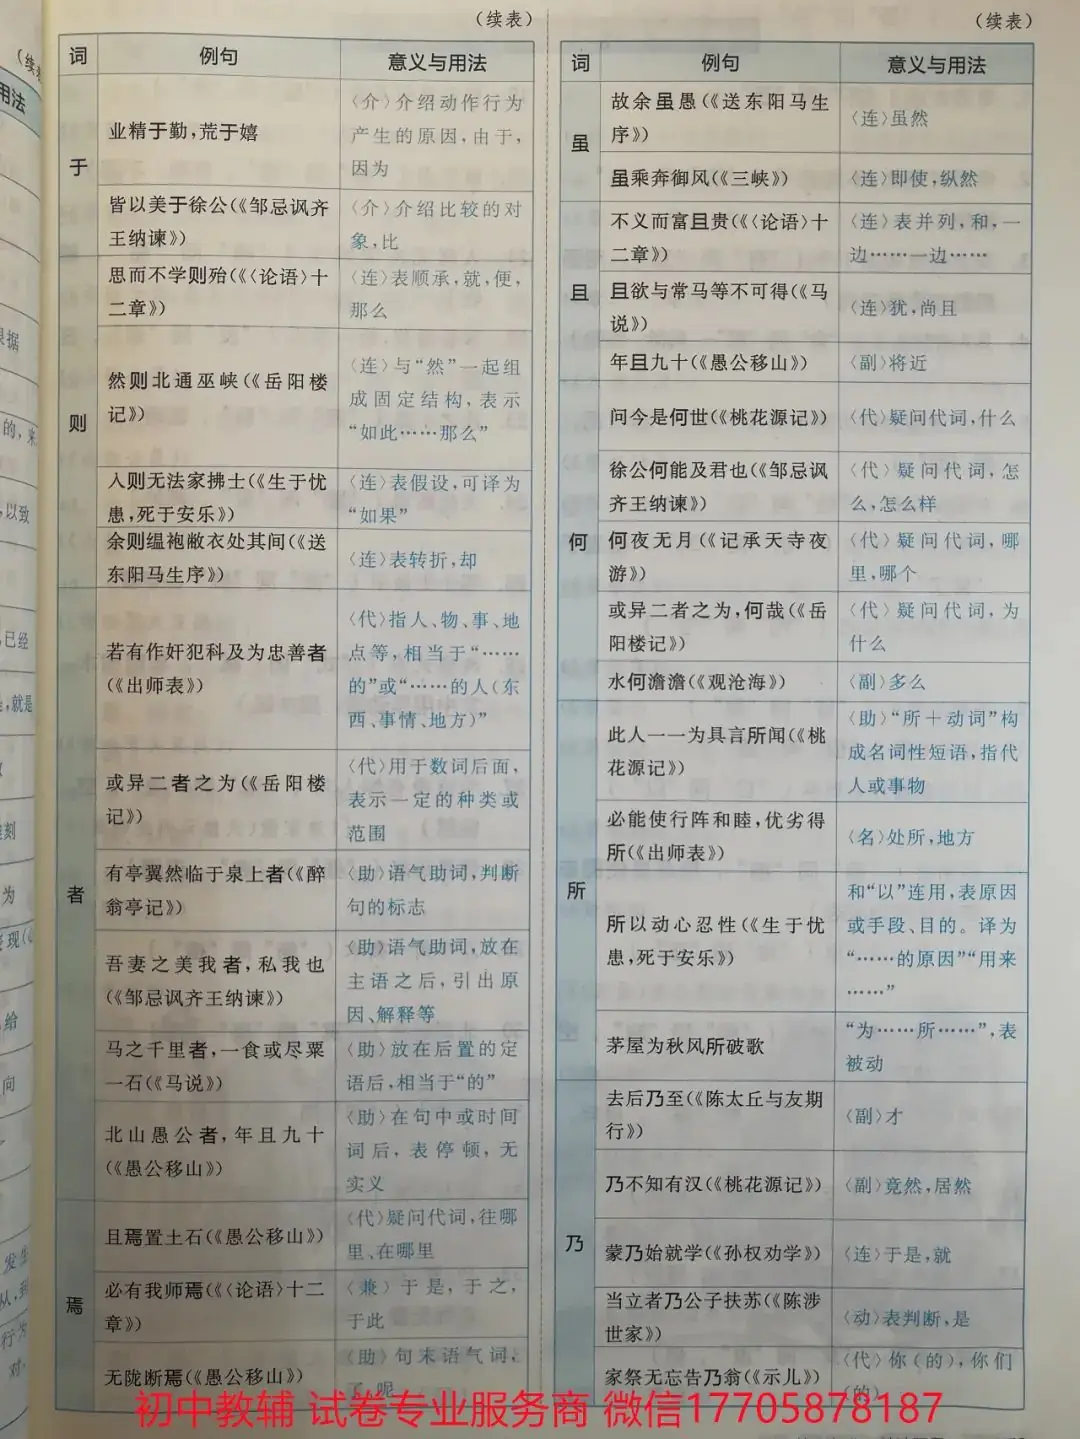 （续表）
词 例句 意义与用法
于
业精于勤，荒于嬉
〈介〉介绍动作行为
产生的原因，由于，
因为
皆以美于徐公(《邹忌讽齐
王纳谏》)
〈介〉介绍比较的对
象，比
则
思而不学则殆(《〈论语〉十
二章》)
〈连〉表顺承，就，便，
那么
然则北通巫峡(《岳阳楼
记》)
〈连〉与“然”一起组
成固定结构，表示
“如此……那么”
入则无法家拂士(《生于忧
患，死于安乐》)
〈连〉表假设，可译为
“如果”
余则缊袍敝衣处其间(《送
东阳马生序》)
〈连〉表转折，却
者
若有作奸犯科及为忠善者
(《出师表》)
〈代〉指人、物、事、地
点等，相当于“……
的”或“……的人(东
西、事情、地方)”
或异二者之为(《岳阳楼
记》)
〈代〉用于数词后面，
表示一定的种类或
范围
有亭翼然临于泉上者(《醉
翁亭记》)
〈助〉语气助词，判断
句的标志
吾妻之美我者，私我也
(《邹忌讽齐王纳谏》)
〈助〉语气助词，放在
主语之后，引出原
因、解释等
马之千里者，一食或尽粟
一石(《马说》)
〈助〉放在后置的定
语后，相当于“的”
北山愚公者，年且九十
(《愚公移山》)
〈助〉在句中或时间
词后，表停顿，无
实义
焉
且焉置土石(《愚公移山》)
〈代〉疑问代词，往哪
里、在哪里
必有我师焉(《〈论语〉十二
章》)
〈兼〉于是，于之，
于此
无陇断焉(《愚公移山》)
〈助〉句末语气词，
了，呢
（续表）
词 例句 意义与用法
虽
故余虽愚(《送东阳马生
序》)
〈连〉虽然
虽乘奔御风(《三峡》)
〈连〉即使，纵然
且
不义而富且贵(《〈论语〉十
二章》)
〈连〉表并列，和，一
边……一边……
且欲与常马等不可得(《马
说》)
〈连〉犹，尚且
年且九十(《愚公移山》)
〈副〉将近
何
问今是何世(《桃花源记》)
〈代〉疑问代词，什么
徐公何能及君也(《邹忌讽
齐王纳谏》)
〈代〉疑问代词，怎
么，怎么样
何夜无月(《记承天寺夜
游》)
〈代〉疑问代词，哪
里，哪个
或异二者之为，何哉(《岳
阳楼记》)
〈代〉疑问代词，为
什么
水何澹澹(《观沧海》)
〈副〉多么
所
此人一一为具言所闻(《桃
花源记》)
〈助〉“所＋动词”构
成名词性短语，指代
人或事物
必能使行阵和睦，优劣得
所(《出师表》)
〈名〉处所，地方
所以动心忍性(《生于忧
患，死于安乐》)
和“以”连用，表原因
或手段、目的。译为
“……的原因”“用来
……”
茅屋为秋风所破歌
“为……所……”，表
被动
乃
去后乃至(《陈太丘与友期
行》)
〈副〉才
乃不知有汉(《桃花源记》)
〈副〉竟然，居然
蒙乃始就学(《孙权劝学》)
〈连〉于是，就
当立者乃公子扶苏(《陈涉
世家》)
〈动〉表判断，是
家祭无忘告乃翁(《示儿》)
〈代〉你(的)，你们
(的)
初中教辅 试卷专业服务商 微信17705878187